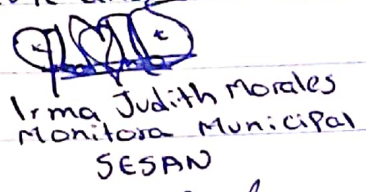 Irma Judith Morales
Monitora Municipal
SESAN